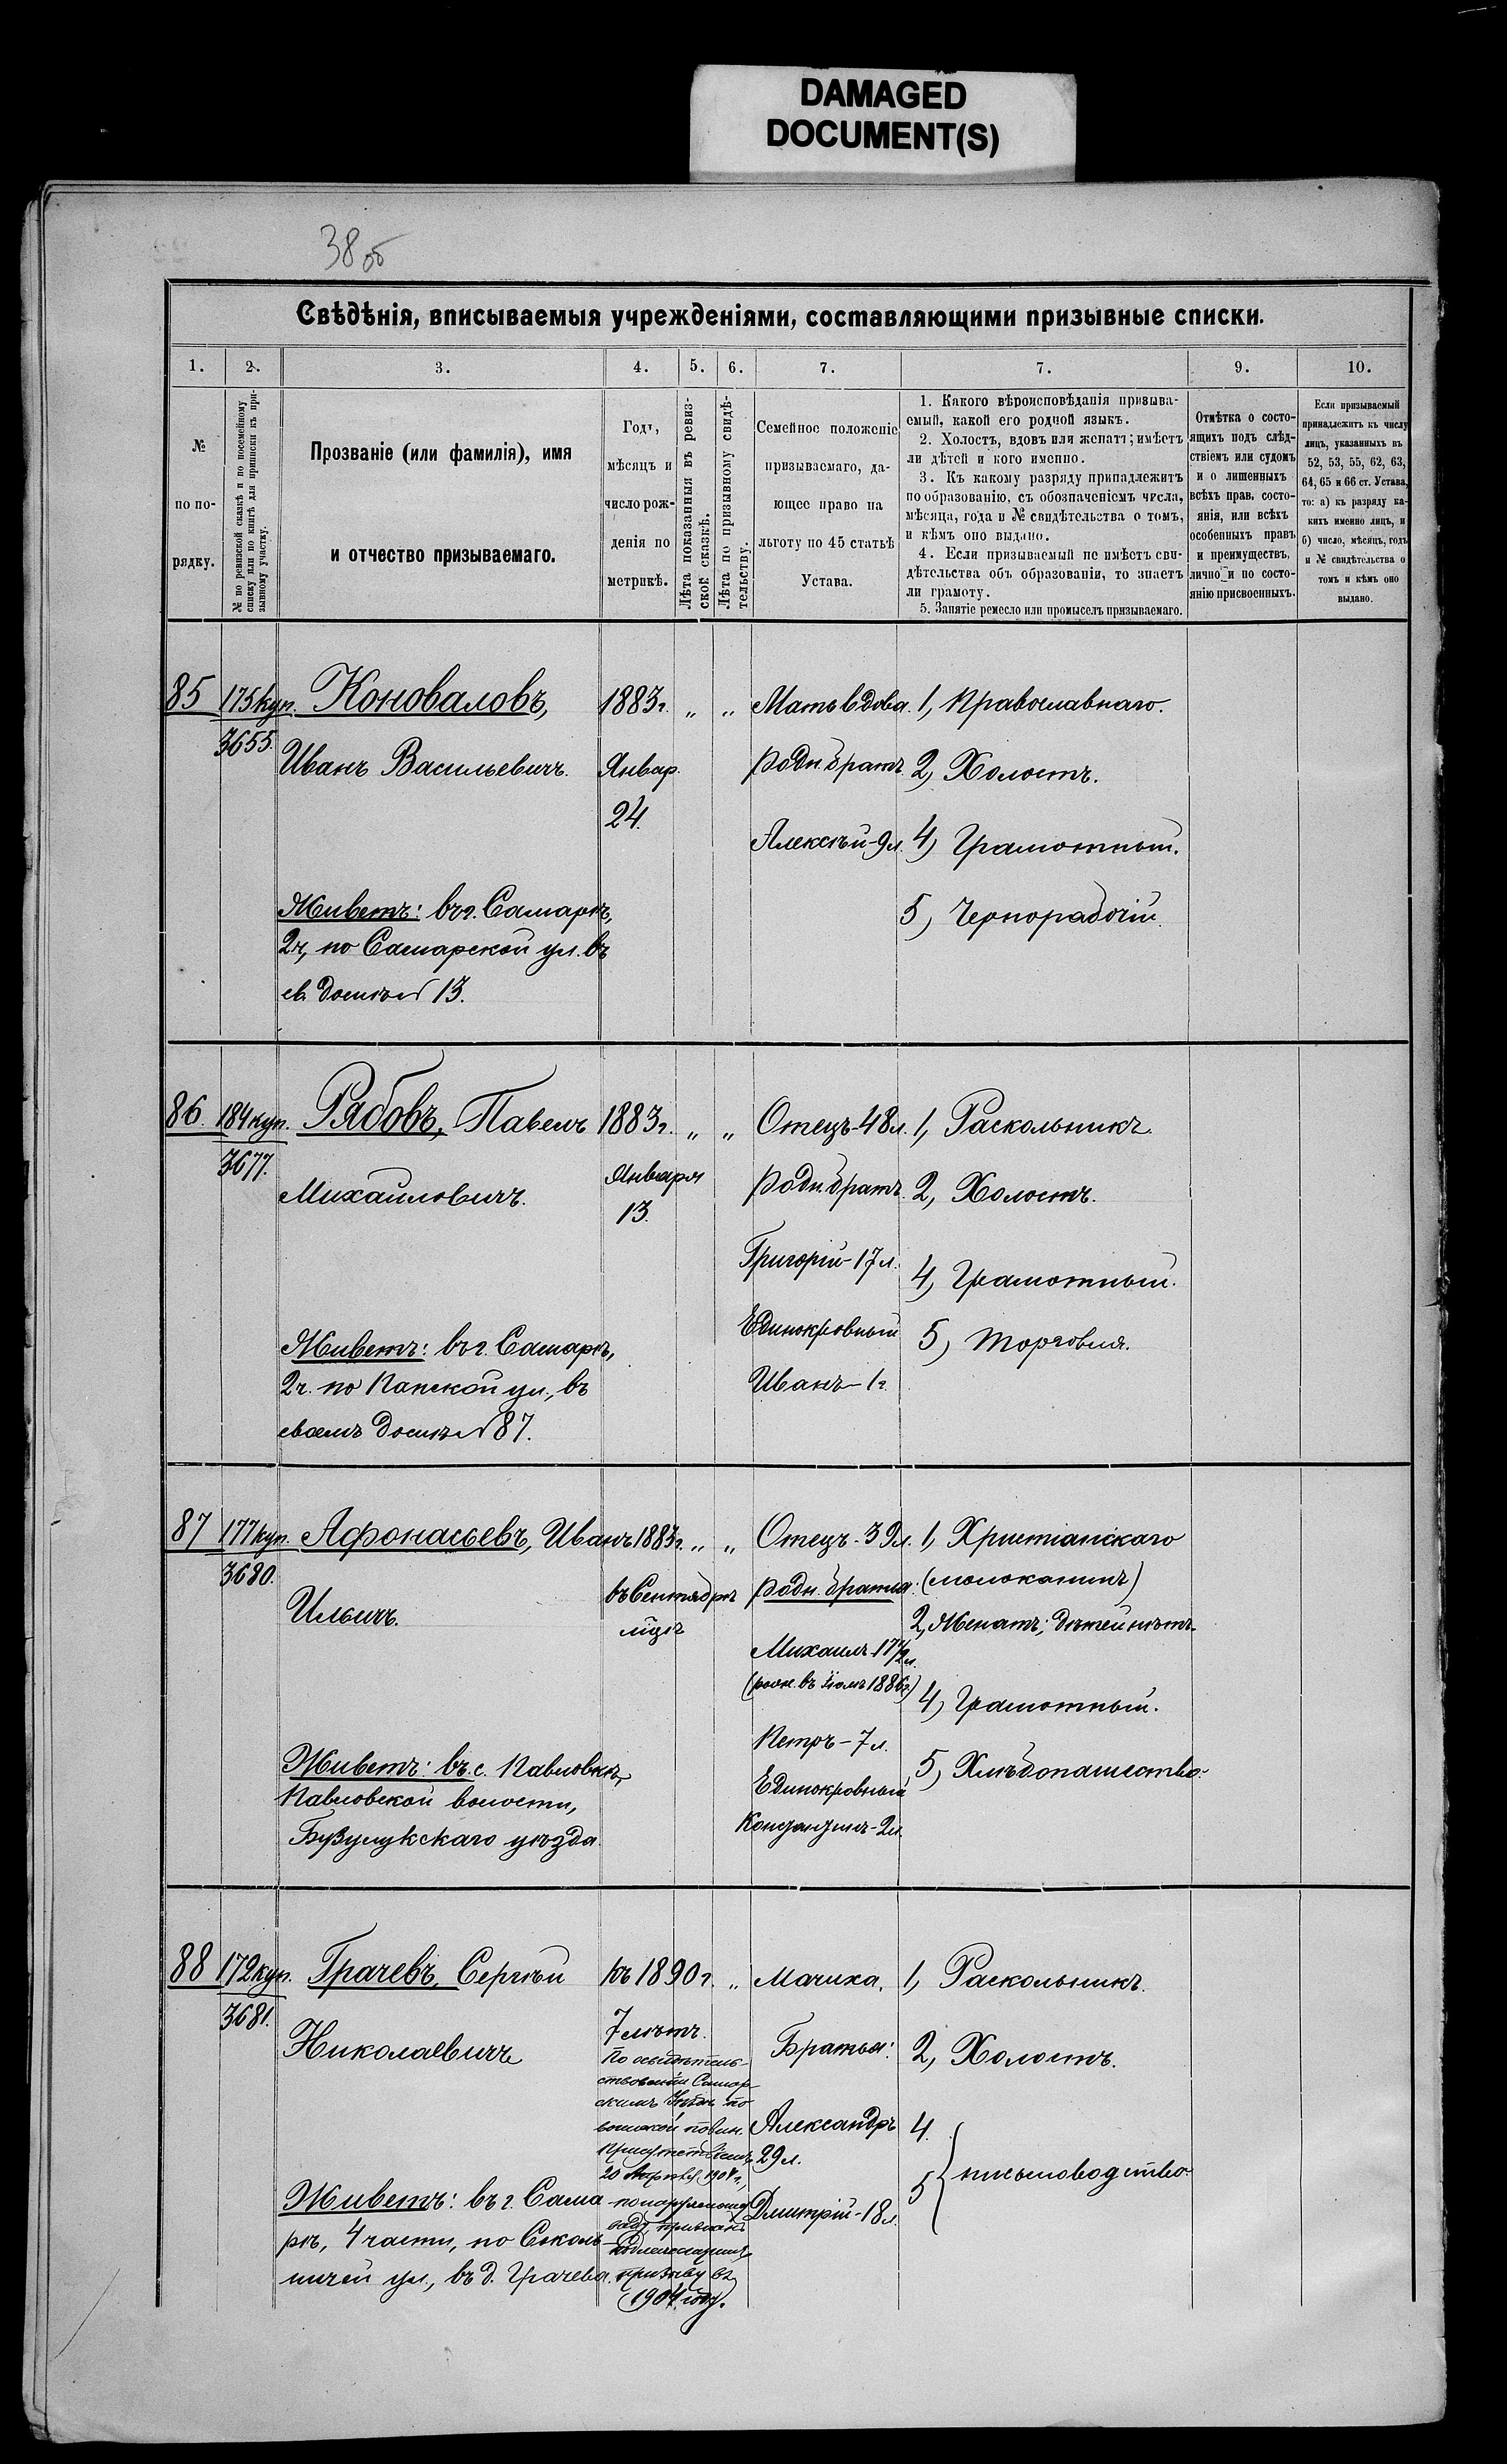 DAMAGED
DOCUMENT(S)
38 об
Свѣдѣнія, вписываемыя учрежденіями, составляющими призывные списки.
1. 2. 3. 4. 5. 6. 7. 7. 9. 10.
№
по по-
рядку.
№ по ревизской сказкѣ и по посемейному
списку или по книгѣ для приписки къ при-
зывному участку.
Прозваніе (или фамилія), имя
и отчество призываемаго.
Годъ,
мѣсяцъ и
число рож-
денія по
метрикѣ.
Лѣта показанныя въ ревиз-
ской сказкѣ.
Лѣта по призывному свидѣ-
тельству.
Семейное положеніе
призываемаго, да-
ющее право на
льготу по 45 статьѣ
Устава.
1. Какого вѣроисповѣданія призыва-
емый, какой его родной языкъ.
2. Холостъ, вдовъ или женатъ; имѣетъ
ли дѣтей и кого именно.
3. Къ какому разряду принадлежитъ
по образованію, съ обозначеніемъ числа,
мѣсяца, года и № свидѣтельства о томъ,
и кѣмъ оно выдано.
4. Если призываемый не имѣетъ сви-
дѣтельства объ образованіи, то знаетъ
ли грамоту.
5. Занятіе ремесло или промыселъ призываемаго.
Отмѣтка о состо-
ящихъ подъ слѣд-
ствіемъ или судомъ
и о лишенныхъ
всѣхъ прав. состо-
янія, или всѣхъ
особенныхъ правъ
и преимуществъ,
лично и по состо-
янію присвоенныхъ.
Если призываемый
принадлежитъ къ числу
лицъ, указанныхъ въ
52, 53, 55, 62, 63,
64, 65 и 66 ст. Устава,
то: а) къ разряду ка-
кихъ именно лицъ, и
б) число, мѣсяцъ, годъ
и № свидѣтельства о
томъ и кѣмъ оно
выдано.
85 175 куп. Коноваловъ, 1883 г. „ „ Мать вдова. 1, Православнаго.
3655. Иванъ Васильевичъ. Январ. Родн. братъ 2, Холостъ.
24. Алексѣй-9 л. 4) Грамотный.
Живетъ: въ г. Самарѣ, 5) Чернорабочій.
2 ч, по Самарской ул. въ
св. домѣ № 13.
86. 184 куп. Рябовъ, Павелъ 1883 г. „ „ Отецъ-48 л. 1, Раскольникъ.
3677. Михаиловичъ. Января Родн. братъ. 2, Холостъ.
13. Григорій-17 л. 4, Грамотный.
Единокровный 5) Торговля.
Живетъ: въ г. Самарѣ, Иванъ-1 г.
2 ч. по Панской ул., въ
своемъ домѣ № 87.
87 177 куп. Афонасьевъ, Иванъ 1883 г. „ „ Отецъ-39 л. 1, Христіанскаго
3680. Ильичъ. въ Сентябрѣ Родн. братья: (молоканинъ)
м-цѣ 2, Женатъ; дѣтей нѣтъ.
Михаилъ-17 1/2 л.
1886 г.) 4) Грамотный.
Петръ-7 л.
Живетъ: въ с. Павловкѣ, 5) Хлѣбопашество.
Единокровный
Павловской волости,
2 л.
Бузулукскаго уѣзда.
88 172 куп. Грачевъ, Сергѣй къ 1890 г. „ Мачиха. 1, Раскольникъ.
3681. Николаевичъ 7 лѣтъ. Братья: 2, Холостъ.
По освидѣтель-
ствованіи Самар-
скимъ Уѣзд. по
воинской повин.
Присутствіемъ
20 Апрѣля 1904 г.,
по наружному
виду признанъ
подлежащимъ
призыву въ
1904 году.
Александръ 4.
29 л. 5 } письмоводство.
Живетъ: въ г. Сама- Дмитрій-18 л.
рѣ, 4 части, по Соколь-
ничей ул., въ д. Грачева.